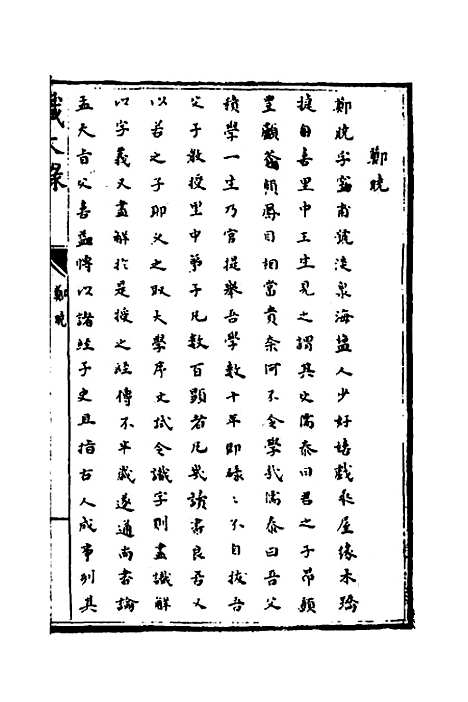 鄭曉
鄭曉字窒甫號淡泉海鹽人少好嬉戲乘屋緣木蹻
捷自喜里中王生見之謂其父儒泰曰君之子昂顙
豐顱蒼頰鳳目相當貴奈何不令學我儒泰曰吾父
積學一生乃官提舉吾學數十年即碌〻不自拔吾
父子教授里中弟子凡數百顯者凡幾讀書良苦又
以若之子耶父之取大學序文試令識字則盡識解
以字義又盡解於是授之經傳不半歲遂通尚書論
孟大旨父喜益博以諸經子史且指古人成事列其
鄭曉